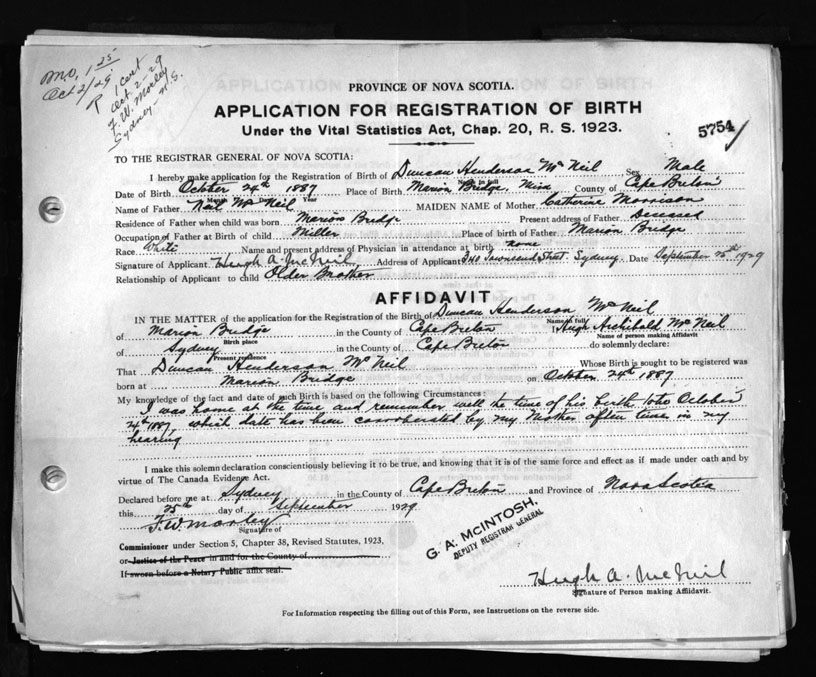 M.O. 1.25
Oct 2/29
R 1 cert
Oct. 2-29
F. W. Morley
Sydney - N.S.
PROVINCE OF NOVA SCOTIA.
APPLICATION FOR REGISTRATION OF BIRTH
Under the Vital Statistics Act, Chap. 20, R. S. 1923.
5754
TO THE REGISTRAR GENERAL OF NOVA SCOTIA:
I hereby make application for the Registration of Birth of Duncan Henderson McNeil Sex Male
Date of Birth October 24th 1887 Place of Birth Marion Bridge, County of Cape Breton
Month Day Year
Name of Father Neil McNeil MAIDEN NAME of Mother Catherine Morrison
Residence of Father when child was born Marion Bridge Present address of Father Deceased
Occupation of Father at Birth of child Miller Place of birth of Father Marion Bridge
Race White Name and present address of Physician in attendance at birth none
Signature of Applicant Hugh A. McNeil Address of Applicant 340 Townsend Street, Sydney. Date September 25th 1929
Relationship of Applicant to child Older Brother
AFFIDAVIT
IN THE MATTER of the application for the Registration of the Birth of Duncan Henderson McNeil
Name in full
of Marion Bridge in the County of Cape Breton I Hugh Archibald McNeil
Birth place Name of person making Affidavit
of Sydney in the County of Cape Breton do solemnly declare:
Present residence
That Duncan Henderson McNeil Whose Birth is sought to be registered was
born at Marion Bridge on October 24th 1887
My knowledge of the fact and date of such Birth is based on the following Circumstances:
I was home at the time and remember well the time of his birth October
24th 1887, which date has been cooroberated by my Mother often times in my
hearing
I make this solemn declaration conscientiously believing it to be true, and knowing that it is of the same force and effect as if made under oath and by
virtue of The Canada Evidence Act.
Declared before me at Sydney in the County of Cape Breton and Province of Nova Scotia
this 25th day of September 1929.
F. W. Morley
Signature of
Commissioner under Section 5, Chapter 38, Revised Statutes, 1923,
or Justice of the Peace in and for the County of
If sworn before a Notary Public affix seal.
G. A. McINTOSH,
DEPUTY REGISTRAR GENERAL
Hugh A. McNeil
Signature of Person making Affidavit.
For Information respecting the filling out of this Form, see Instructions on the reverse side.